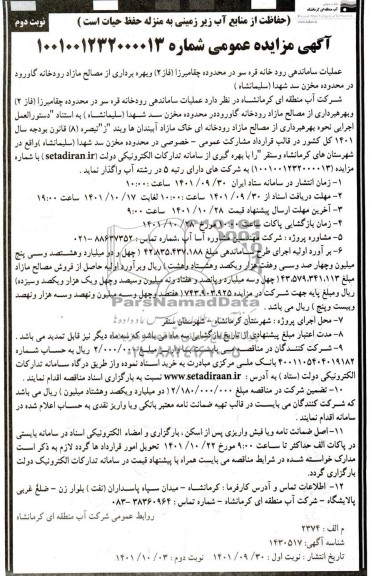 (حفاظت از منابع آب زیر زمینی به منزله حفظ حیات است)
نوبت دوم
آگهی مزایده عمومی شماره ۱۰۰۱۰۰۱۲۳۲۰۰۰۰۱۳
عملیات ساماندهی رود خانه قره سو در محدوده چقامیرزا (فاز۲) وبهره برداری از مصالح مازاد رودخانه گاورود
در محدوده مخزن سد شهدا (سلیمانشاه)
شرکت آب منطقه ای کرمانشاه در نظر دارد عملیات ساماندهی رودخانه قره سو در محدوده چقامیرزا (فاز ۲)
وبهرهبرداری از مصالح مازاد رودخانه گاوروددر محدوده مخزن سد شهدا (سلیمانشاه) به استناد "دستورالعمل
اجرایی نحوه بهرهبرداری از مصالح مازاد رودخانه های خاک مازاد آببندان ها وبند "ز"تبصره (۸) قانون بودجه سال
۱۴۰۱ کل کشور در قالب قرارداد مشارکت عمومی - خصوصی در محدوده مخزن سد شهدا (سلیمانشاه )واقع در
شهرستان های کرمانشاه وسنقر "را با بهره گیری از سامانه تدارکات الکترونیکی دولت (setadiran.ir) با شماره
مزایده (۱۰۰۱۰۰۱۲۳۲۰۰۰۰۱۳) به شرکت های دارای رتبه ۵ در رشته آب واگذار نماید .
۱- زمان انتشار در سامانه ستاد ایران ۱۴۰۱/۰۹/۳۰ ساعت ۱۰:۰۰
۲- مهلت دریافت اسناد از ۱۴۰۱/۰۹/۳۰ ساعت ۱۰:۰۰ لغایت ۱۴۰۱/۱۰/۱۷ ساعت ۱۹:۰۰
۳- آخرین مهلت ارسال پیشنهاد قیمت ۱۴۰۱/۱۰/۲۸ ساعت ۹:۰۰
۴- زمان بازگشایی پاکات ساعت مورخ ۱۴۰۱/۱۰/۲۸
۵- مشاوره پروژه : شرکت مهندسین مشاوره آسا آب ،شماره تماس : ۸۸۶۳۷۳۵۲-۰۲۱
۶- بر آورد اولیه اجرای طرح ساماندهی مبلغ ۴۲/۸۳۵/۴۳۷/۱۸۸ ( چهل و دو میلیارد وهشتصد وسی پنج
میلیون وچهار صد وسی وهفت هزار ویکصد وهشتاد وهشت ) ریال وبر آورد اولیه حاصل از فروش مصالح مازاد
۴۳/۵۷۹/۳۴۱/۱۱۳ (چهل وسه میلیارد وپانصد وهفتاد ونه میلیون وسیصد وچهل ویک هزار ویکصد وسیزده)
ریال ومبلغ پایه جهت شرکت در مزایده ۷۴۳/۹۰۳/۹۲۵ (هفتصد وچهل وسه میلیون ونهصد وسه هزار ونهصد
وبیست وپنج ) ریال می باشد .
۷- محل اجرای پروژه : شهرستان کرمانشاه - شهرستان سنقر
۸- مدت اعتبار مبلغ پیشنهادی از تاریخ بازگشایی سه ماه می باشد که سه ماه دیگر نیز قابل تمدید می باشد .
۹- شرکت کنندگان در مناقصه ۲/۰۰۰/۰۰۰ ریال به حساب شماره
۴۰۰۱۱۰۵۴۰۴۰۱۹۱۸۲ بانک ملی مرکزی مبادرت به خرید اسناد نموده واز طریق درگاه سامانه تدارکات
الکترونیکی دولت (ستاد ) به آدرس : www.setadiraan.ir نسبت به بارگزاری اسناد مناقصه اقدام نمایند .
۱۰- تضمین شرکت در مناقصه مبلغ ۲/۱۸۰/۰۰۰/۰۰۰ (دو میلیارد ویکصد وهشتاد میلیون ) ریال می باشد
که شرکت کنندگان می بایست در قالب تهیه ضمانت نامه معتبر بانکی ویا واریز نقدی به حساب اعلام شده در
سامانه اقدام نمایند .
۱۱-اصل ضمانت نامه ویا فیش واریزی پس از اسکن ، بارگزاری و امضاء الکترونیکی اسناد در سامانه بایستی
در پاکات الف حداکثر تا ساعت ۹:۰۰ مورخ ۱۴۰۱/۱۰/۲۲ تحویل امور قرارداد ها گردد لازم به ذکر است
مدارک خواسته شده در شرایط مناقصه می بایست همراه با پیشنهاد قیمت در سامانه تدارکات الکترونیک دولت
بارگزاری گردد.
۱۲- اطلاعات تماس و آدرس کارفرما : کرمانشاه - میدان سپاه پاسداران (نفت ) بلوار زن - ضلع غربی
پالایشگاه - شرکت آب منطقه ای کرمانشاه - شماره تماس : ۳۸۳۶۰۹۶۴-۰۸۳
روابط عمومی شرکت آب منطقه ای کرمانشاه
م الف : ۲۳۷۴
شناسه آگهی: ۱۴۳۰۵۱۷
تاریخ انتشار : نوبت اول : ۱۴۰۱/۰۹/۳۰ نوبت دوم : ۱۴۰۱/۱۰/۰۳